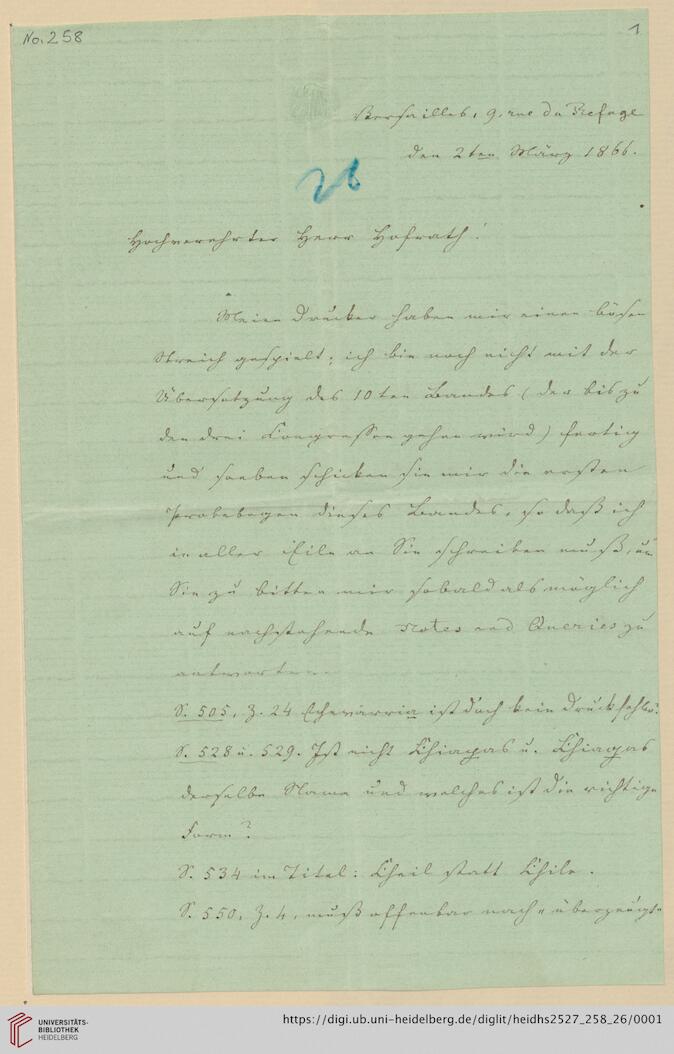 No. 258
1
Versailles, 9. rue du Refuge
den 2ten März 1866.
26
Hochverehrter Herr Hofrath!
Meine Drucker haben mir einen bösen
Streich gespielt; ich bin noch nicht mit der
Übersetzung des 10ten Bandes (der bis zu
den drei Congressen gehen wird) fertig
und soeben schicken sie mir die ersten
Probebogen dieses Bandes, so daß ich
in aller Eile an Sie schreiben muß, um
Sie zu bitten mir sobald als möglich
auf nachstehende Notes and Queries zu
antworten.
S. 505, Z. 24 Echevarria ist doch kein Druckfehler?
S. 528 u. 529. Ist nicht Chiapas u. Chiagas
derselbe Name und welches ist die richtige
Form?
S. 534 im Titel: Cheil statt Chile.
S. 550, Z. 4, muß offenbar nach „überzeugt"
UNIVERSITÄTS-
BIBLIOTHEK
HEIDELBERG
https://digi.ub.uni-heidelberg.de/diglit/heidhs2527_258_26/0001